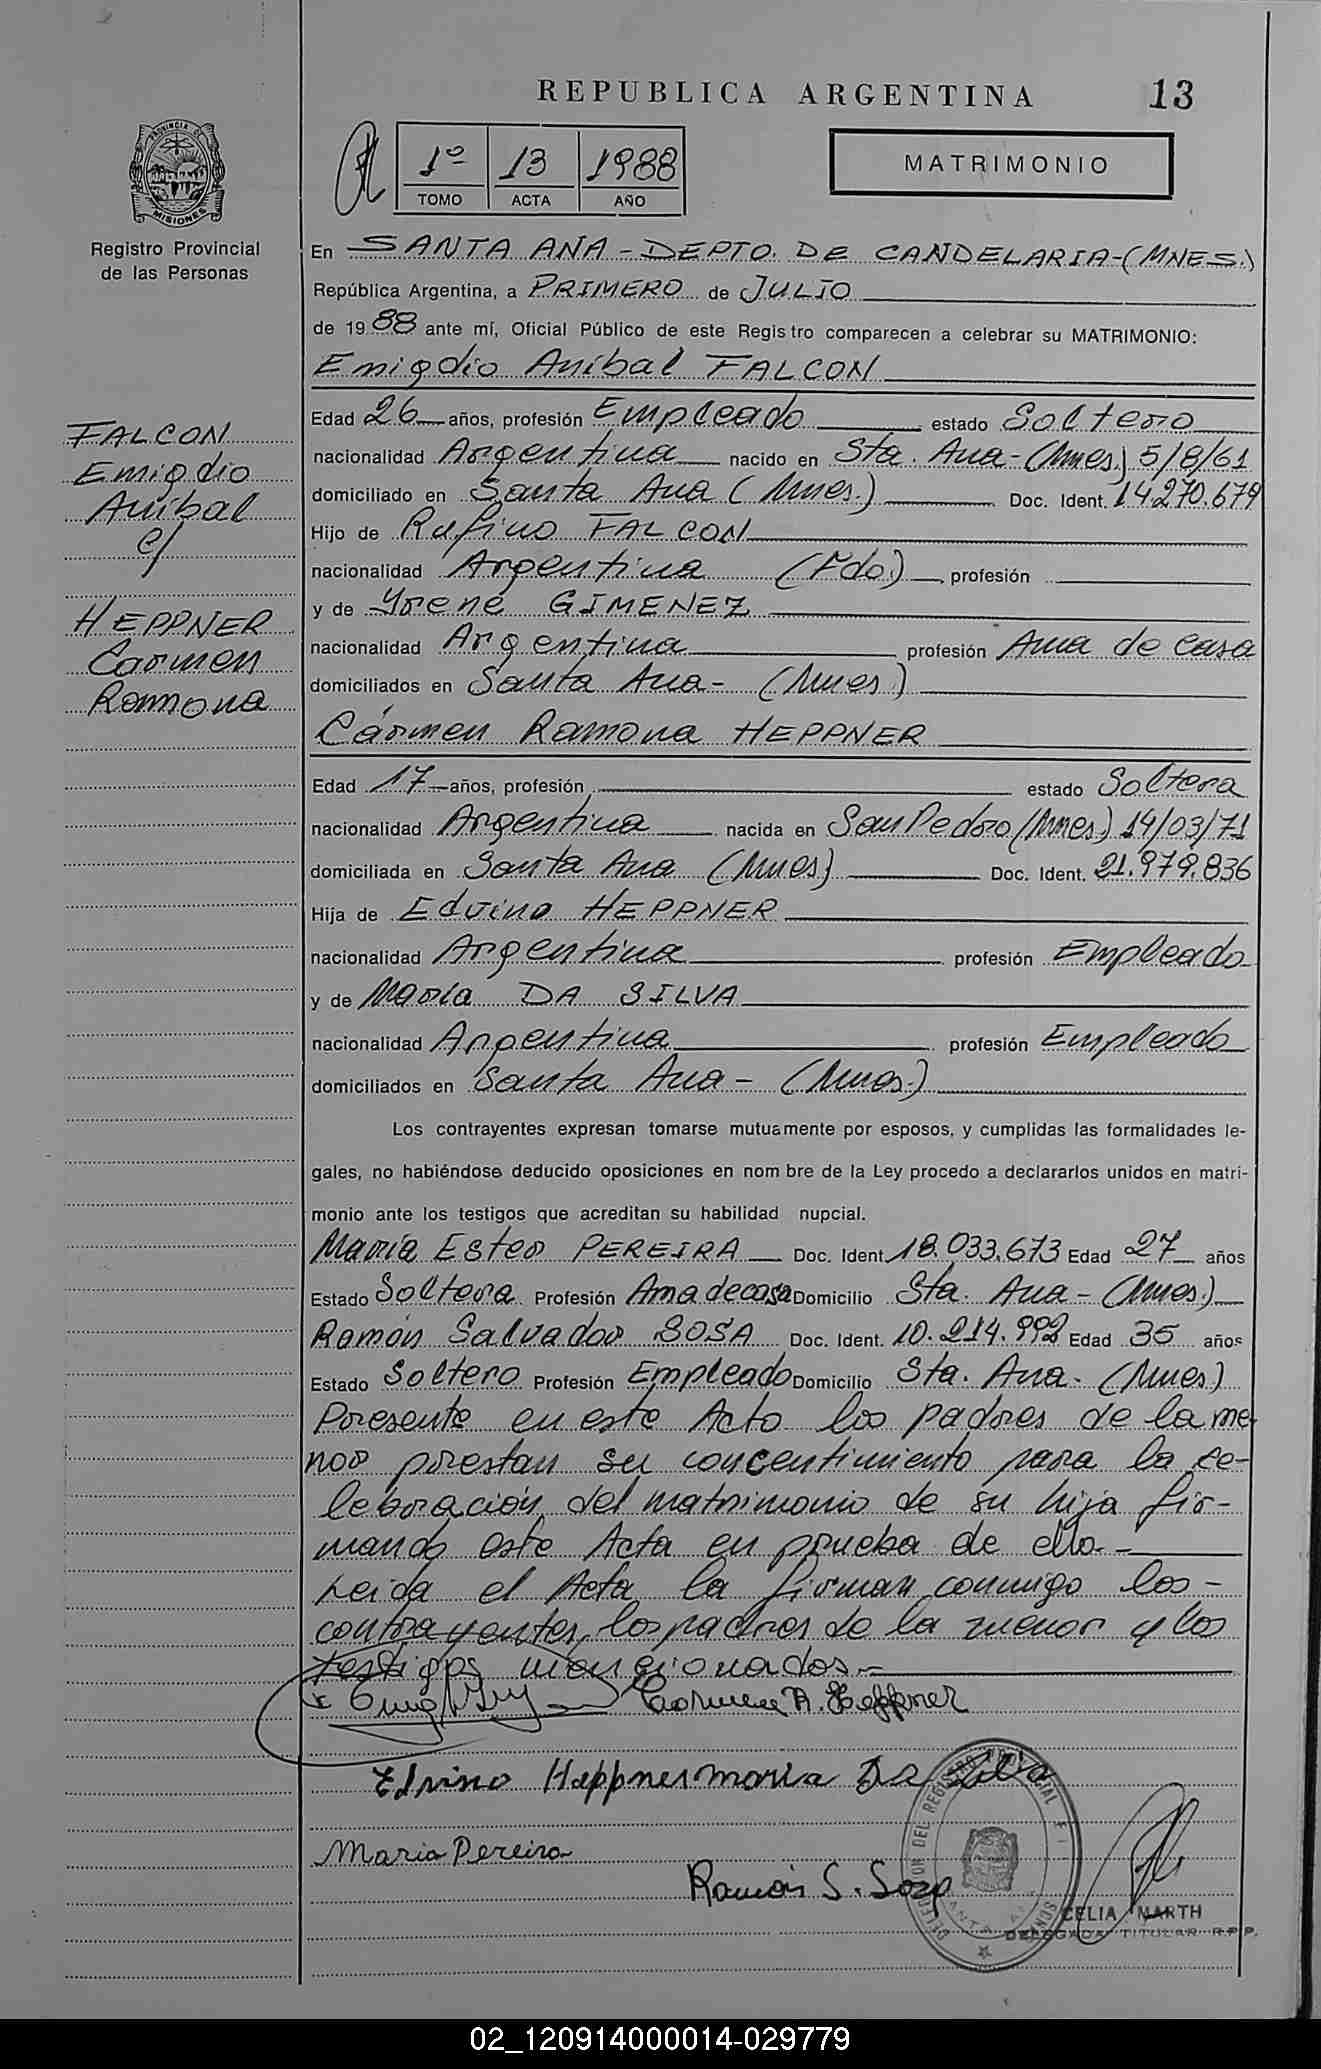 REPUBLICA ARGENTINA 13
PROVINCIA DE
MISIONES
Registro Provincial
de las Personas
1º 13 1988
TOMO ACTA AÑO
MATRIMONIO
En SANTA ANA - DEPTO. DE CANDELARIA - (MNES.)
República Argentina, a PRIMERO de JULIO
de 1988 ante mí, Oficial Público de este Registro comparecen a celebrar su MATRIMONIO:
Emigdio Aníbal FALCON
FALCON
Emigdio
Aníbal
c/
HEPPNER
Carmen
Ramona
Edad 26 años, profesión Empleado estado Soltero
nacionalidad Argentina nacido en Sta. Ana - (Mnes.) 5/8/61
domiciliado en Santa Ana (Mnes.) Doc. Ident. 14.270.679
Hijo de Rufino FALCON
nacionalidad Argentina (Fdo.) profesión
y de Yrene GIMENEZ
nacionalidad Argentina profesión Ama de casa
domiciliados en Santa Ana - (Mnes)
Cármen Ramona HEPPNER
Edad 17 años, profesión estado Soltera
nacionalidad Argentina nacida en San Pedro (Mnes.) 14/03/71
domiciliada en Santa Ana (Mnes) Doc. Ident. 21.979.836
Hija de Edvino HEPPNER
nacionalidad Argentina profesión Empleado
y de María DA SILVA
nacionalidad Argentina profesión Empleado
domiciliados en Santa Ana - (Mnes.)
Los contrayentes expresan tomarse mutuamente por esposos, y cumplidas las formalidades le-
gales, no habiéndose deducido oposiciones en nom bre de la Ley procedo a declararlos unidos en matri-
monio ante los testigos que acreditan su habilidad nupcial.
María Ester PEREIRA Doc. Ident. 18.033.673 Edad 27 años
Estado Soltera Profesión Ama de casa Domicilio Sta. Ana - (Mnes.)
Ramón Salvador SOSA Doc. Ident. 10.214.992 Edad 35 años
Estado Soltero Profesión Empleado Domicilio Sta. Ana - (Mnes)
Presente en este Acto los padres de la me-
nor prestan su concentimiento para la ce-
lebración del matrimonio de su hija fir-
mando este Acta en prueba de ello -
Leida el Acta la firman conmigo los -
contrayentes, los padres de la menor y los
testigos mensionados.-
Carmen R. Heppner
Edvino Heppner maria Da Silva
Maria Pereira
Ramón S. Sosa
CELIA MARTH
DELEGADA TITULAR R.P.P.
02_120914000014-029779